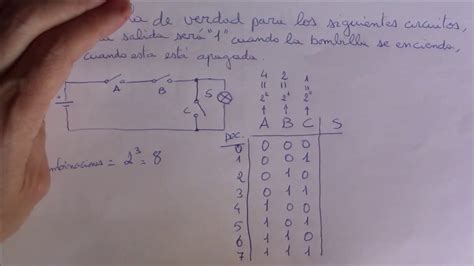 de verdad para los siguientes circuitos,
salida será "1" cuando la bombilla se encienda,
cuando esta está apagada.
4 2 1
" " "
2² 2¹ 2⁰
↑ ↑ ↑
A B S
C
A B C S
DEC.
0 0 0 0
1 0 0 1
2 0 1 0
3 0 1 1
4 1 0 0
5 1 0 1
6 1 1 0
7 1 1 1
combinaciones = 2³ = 8